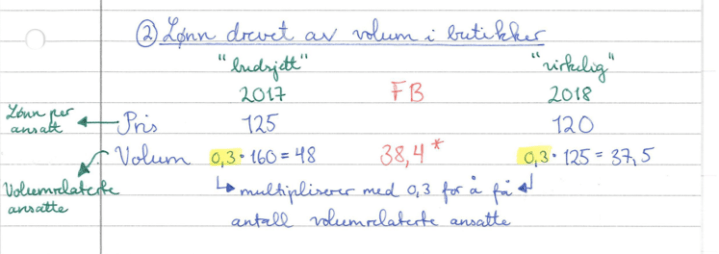 ② Lønn drevet av volum i butikker
"budsjett" "virkelig"
2017 FB 2018
Lønn per
ansatt
Pris 125 120
Volum 0,3 · 160 = 48 38,4* 0,3 · 125 = 37,5
Volumrelaterte
ansatte
multipliserer med 0,3 for å få
antall volumrelaterte ansatte